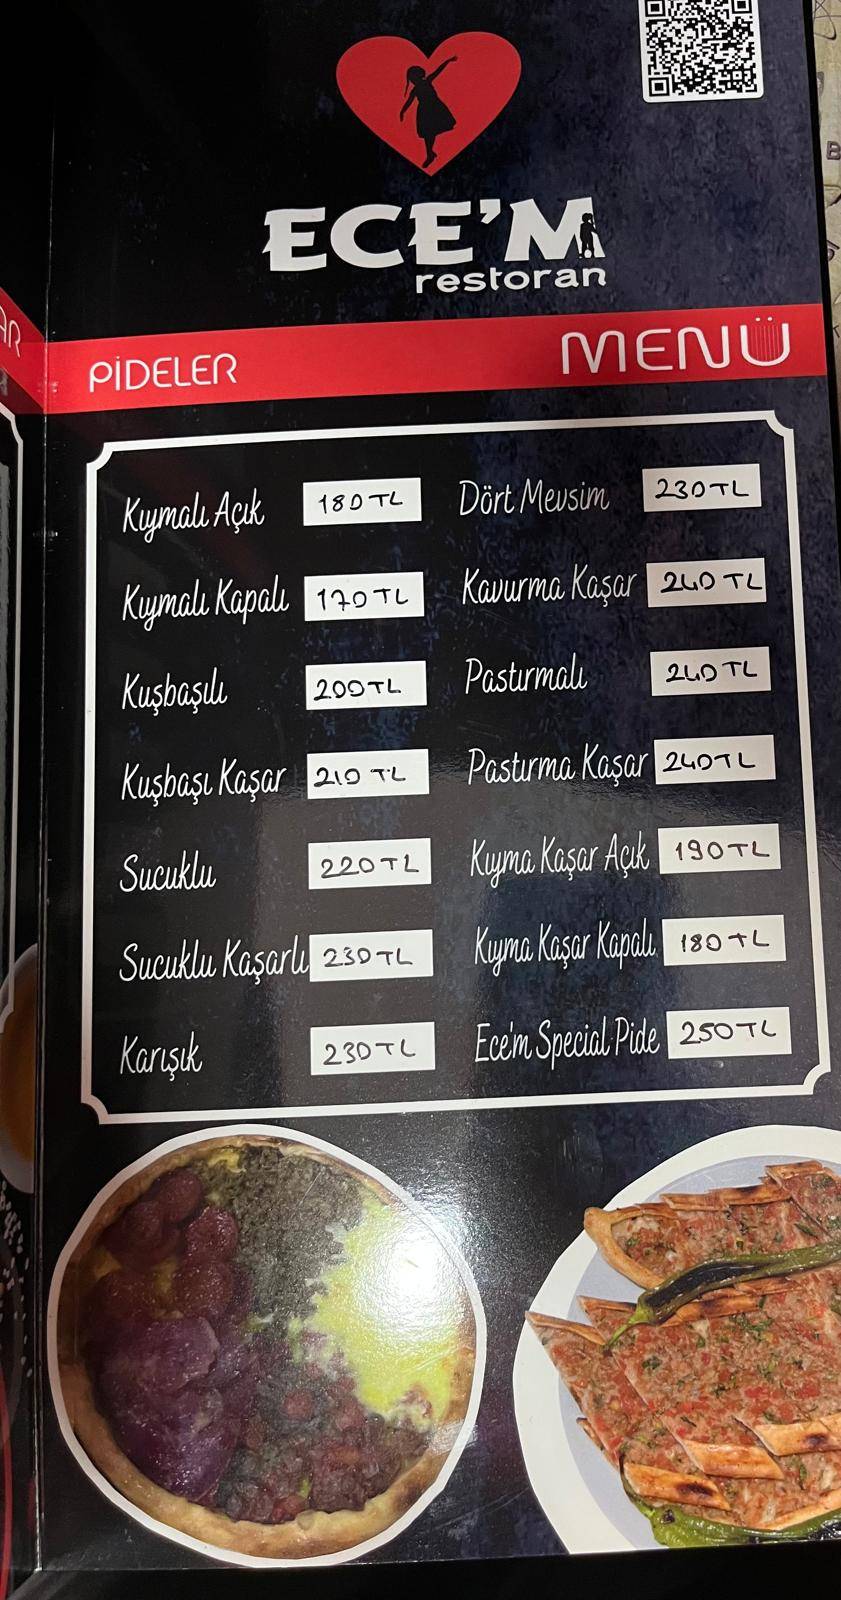 ECE'M
restoran
PİDELER
MENÜ
Kıymalı Açık 180 TL
Kıymalı Kapalı 170 TL
Kuşbaşılı 200 TL
Kuşbaşı Kaşar 210 TL
Sucuklu 220 TL
Sucuklu Kaşarlı 230 TL
Karışık 230 TL
Dört Mevsim 230 TL
Kavurma Kaşar 240 TL
Pastırmalı 240 TL
Pastırma Kaşar 240 TL
Kıyma Kaşar Açık 190 TL
Kıyma Kaşar Kapalı 180 TL
Ece'm Special Pide 250 TL